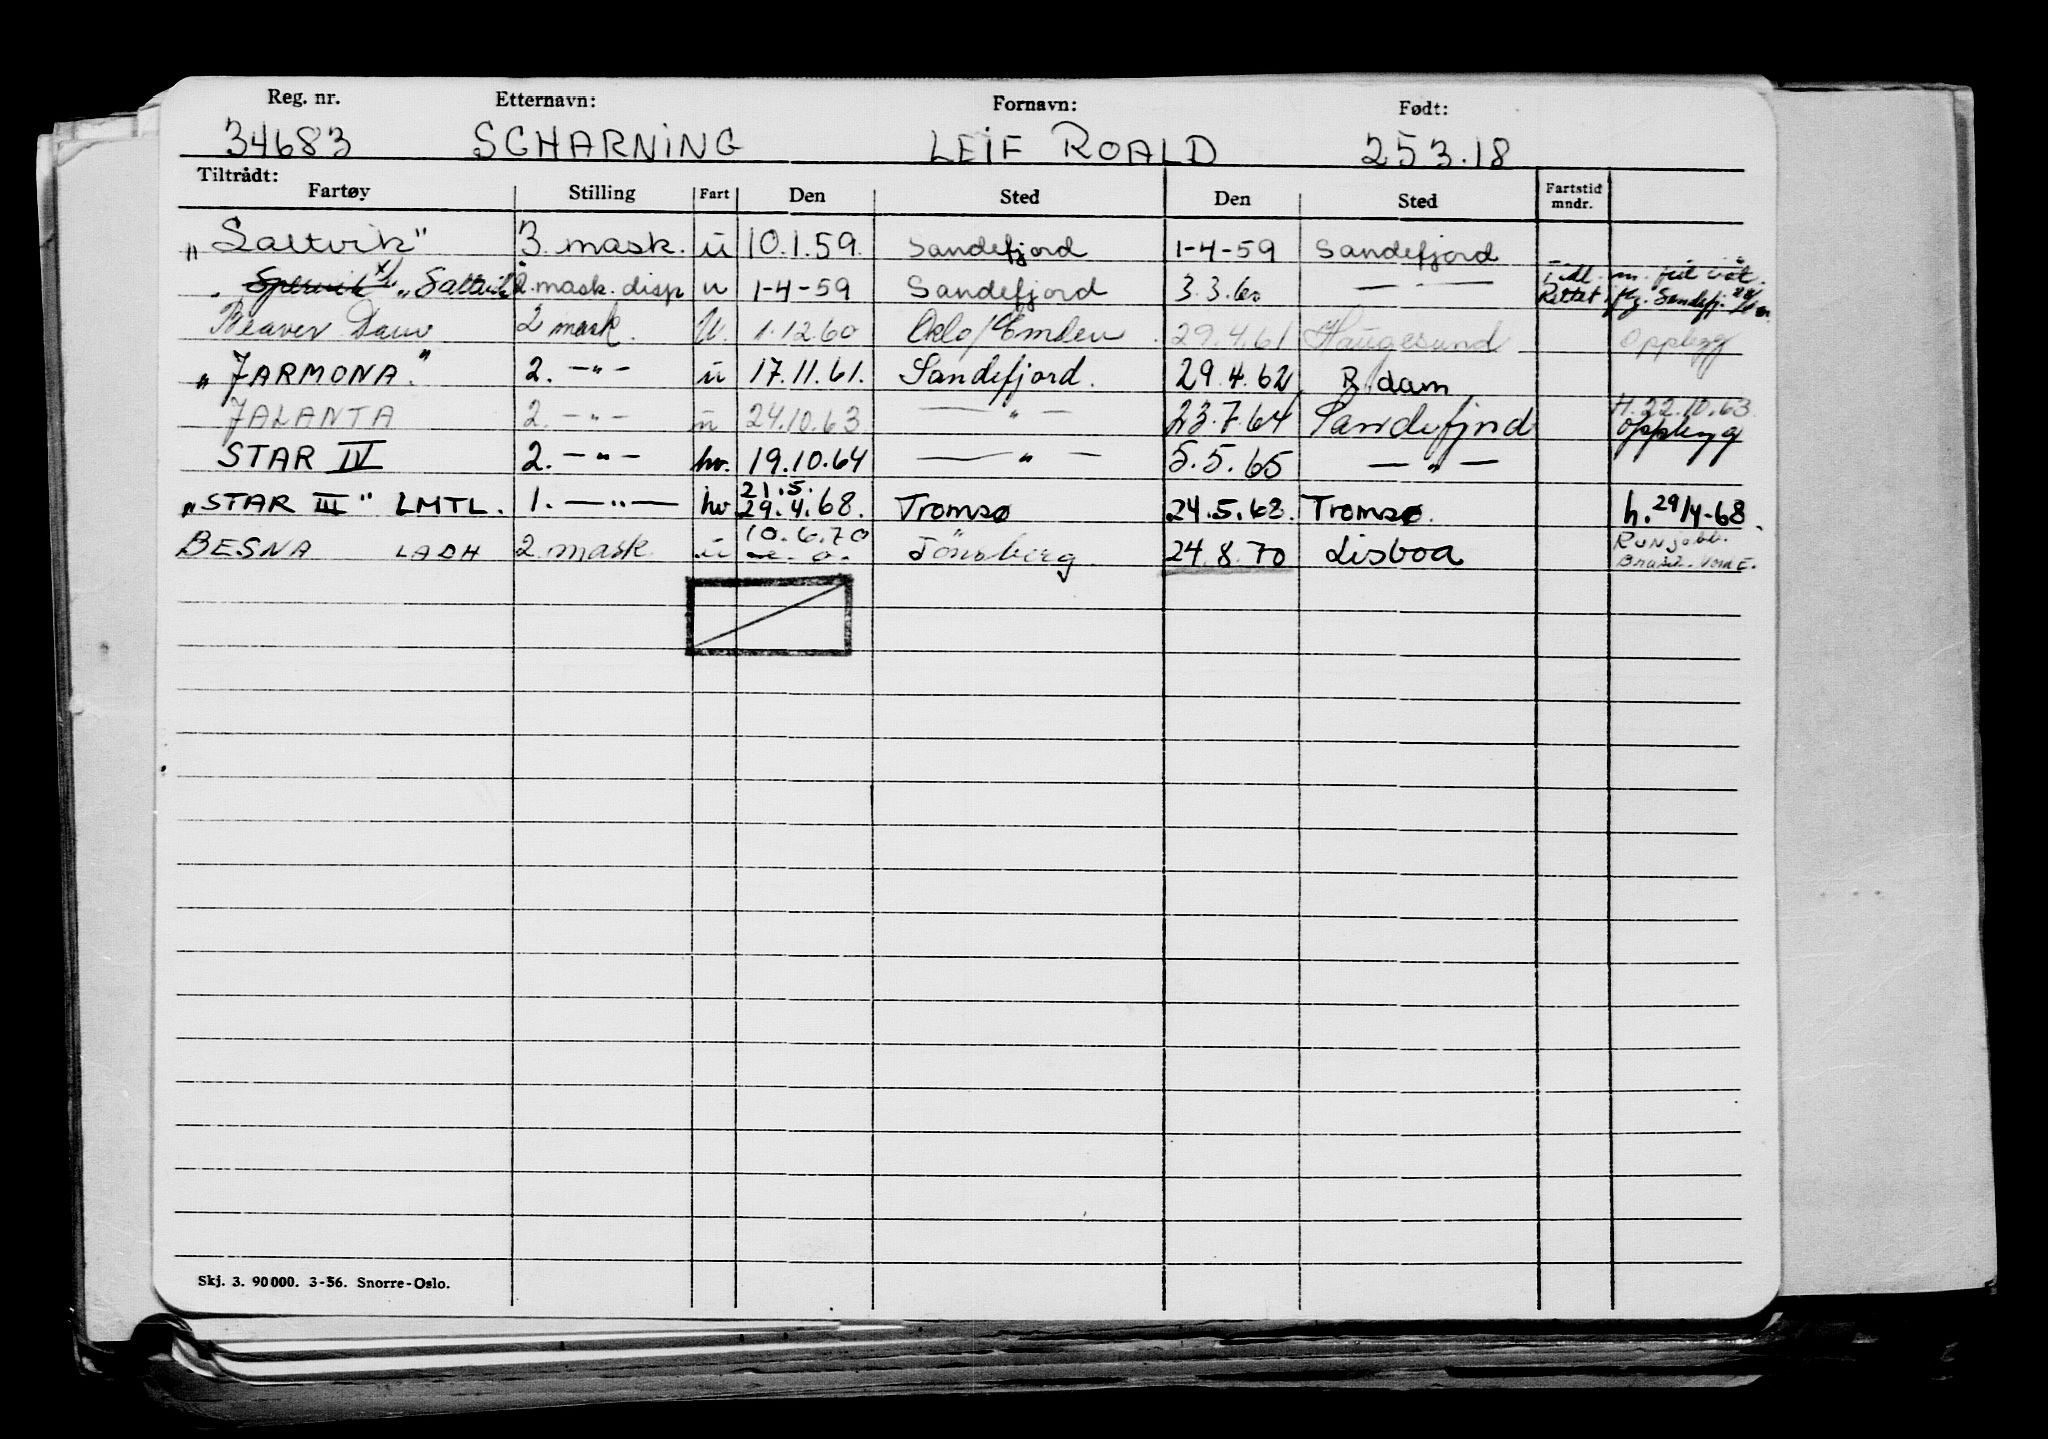 Reg. nr. Etternavn: Fornavn: Født:
34683 SCHARNING LEIF ROALD 25 3.18
Tiltrådt:
Fartøy Stilling Fart Den Sted Den Sted Fartstid mndr.
„Saltvik" 3. mask. u 10.1.59. Sandefjord 1-4-59 Sandefjord
„Saltvik 2. mask. disp u 1-4-59 Sandefjord 3.3.60 — " — Rettet fig. Sandefj.
Beaver Dam 2 mask. U. 1.12.60 Oslo/Emden 29.4.61 Haugesund Opplegg
„JARMONA." 2. —"— u 17.11.61. Sandefjord. 29.4.62 R.dam
JALANTA 2. —"— u 24.10.63 — " — 23.7.64 Sandefjord H. 22.10.63 opplegg
STAR IV 2. —"— hv. 19.10.64 — " — 5.5.65 — " —
21.5.
„STAR III" LMTL. 1. —"— hv 29.4.68. Tromsø 24.5.68. Tromsø. h. 29/4-68.
10.6.70
BESNA LADH 2 mask u Tönsberg 24.8.70 Lisboa
Skj. 3. 90000. 3-56. Snorre-Oslo.